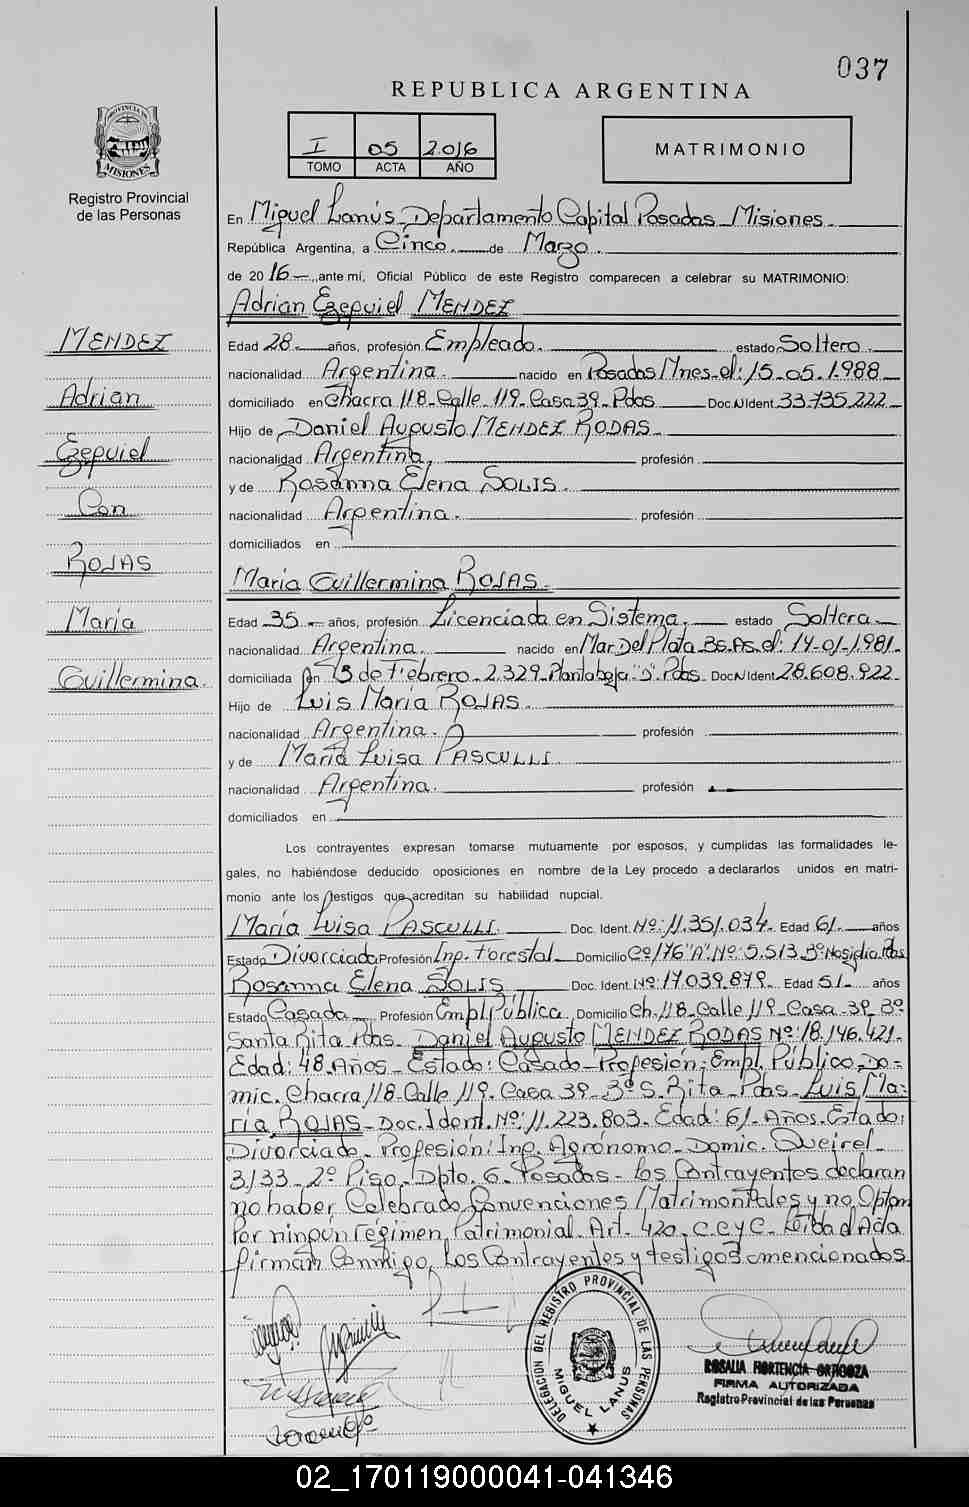 037
REPUBLICA ARGENTINA
PROVINCIA DE MISIONES
Registro Provincial
de las Personas
I 05 2.016
TOMO ACTA AÑO
MATRIMONIO
En Miguel Lanús_Departamento Capital Posadas_Misiones.
República Argentina, a Cinco. de Marzo.
de 2016 ,ante mí, Oficial Público de este Registro comparecen a celebrar su MATRIMONIO:
Adrian Ezequiel MENDEZ
MENDEZ
Adrian
Ezequiel
Con
ROJAS
María
Guillermina.
Edad 28. años, profesión Empleado. estado Soltero.
nacionalidad Argentina. nacido en Posadas Mnes_el: 15_05.1.988
domiciliado en Chacra 118_Calle_119_Casa 39_Pdas Doc.N Ident. 33.735.222
Hijo de Daniel Augusto MENDEZ RODAS_
nacionalidad Argentina. profesión
y de Rosanna Elena SOLIS.
nacionalidad Argentina. profesión
domiciliados en
María Guillermina ROJAS.
Edad 35 años, profesión Licenciada en Sistema. estado Soltera
nacionalidad Argentina. nacido en Mar Del Plata_Bs.As.el: 14-01-1.981-
domiciliada en 13 de Febrero_2.329_Planta baja "D"_Pdas. Doc.N Ident. 28.608.922
Hijo de Luis María ROJAS.
nacionalidad Argentina. profesión
y de María Luisa PASCULLI
nacionalidad Argentina. profesión
domiciliados en
Los contrayentes expresan tomarse mutuamente por esposos, y cumplidas las formalidades le-
gales, no habiéndose deducido oposiciones en nombre de la Ley procedo a declararlos unidos en matri-
monio ante los testigos que acreditan su habilidad nupcial.
María Luisa PASCULLI. Doc. Ident. Nº: 11.351.034. Edad 61. años
Estado Divorciada Profesión Ing. Forestal_ Domicilio Cº/176 "A" Nº: 5.513 Bº Nosiglia Pdas
Rosanna Elena SOLIS Doc. Ident. Nº: 17.039.879. Edad 51- años
Estado Casada Profesión Empl Pública Domicilio Ch.118_Calle 119_Casa_39_Bº
Santa Rita Pdas_ Daniel Augusto MENDEZ RODAS Nº: 18.146.421.
Edad: 48.Años_Estado: Casado_Profesión: Empl. Público. Do=
mic. Chacra 118-Calle 119. Casa 39_Bº S. Rita_Pdas_Luis Ma=
ría ROJAS_Doc. Ident. Nº: 11.223.803. Edad: 61_Años. Estado:
Divorciado_Profesión: Ing. Agrónomo_Domic. Queirel_
3133_2º Piso_Dpto. 6_Posadas_Los Contrayentes declaran
no haber Celebrado Convenciones Matrimoniales y no Optan
Por ningún régimen Patrimonial. Art. 420. C.C y C. Leída el Acta
firman Conmigo, los Contrayentes y testigos mencionados
DELEGACION DEL REGISTRO PROVINCIAL DE LAS PERSONAS
MIGUEL LANUS
ROSALIA HORTENCIA ORTIGOZA
FIRMA AUTORIZADA
Registro Provincial de las Personas
02_170119000041-041346